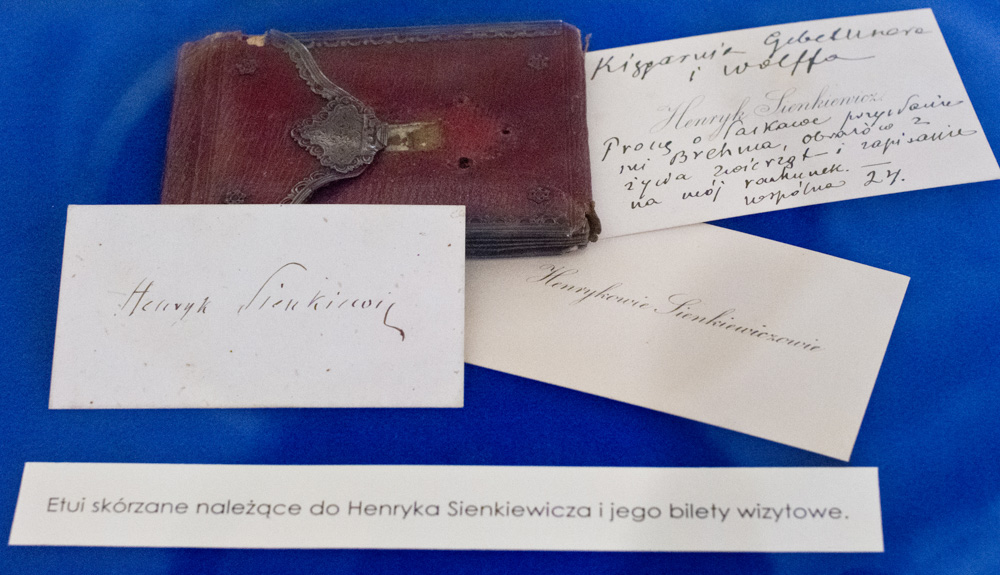 Księgarnia Gebethnera
i Wolffa
Henryk Sienkiewicz
Proszę o łaskawe przysłanie
mi Brehma, obrazów z
życia zwierząt i zapisanie
na mój rachunek. —
Wspólna 24.
Henryk Sienkiewicz
Henrykowie Sienkiewiczowie
Etui skórzane należące do Henryka Sienkiewicza i jego bilety wizytowe.